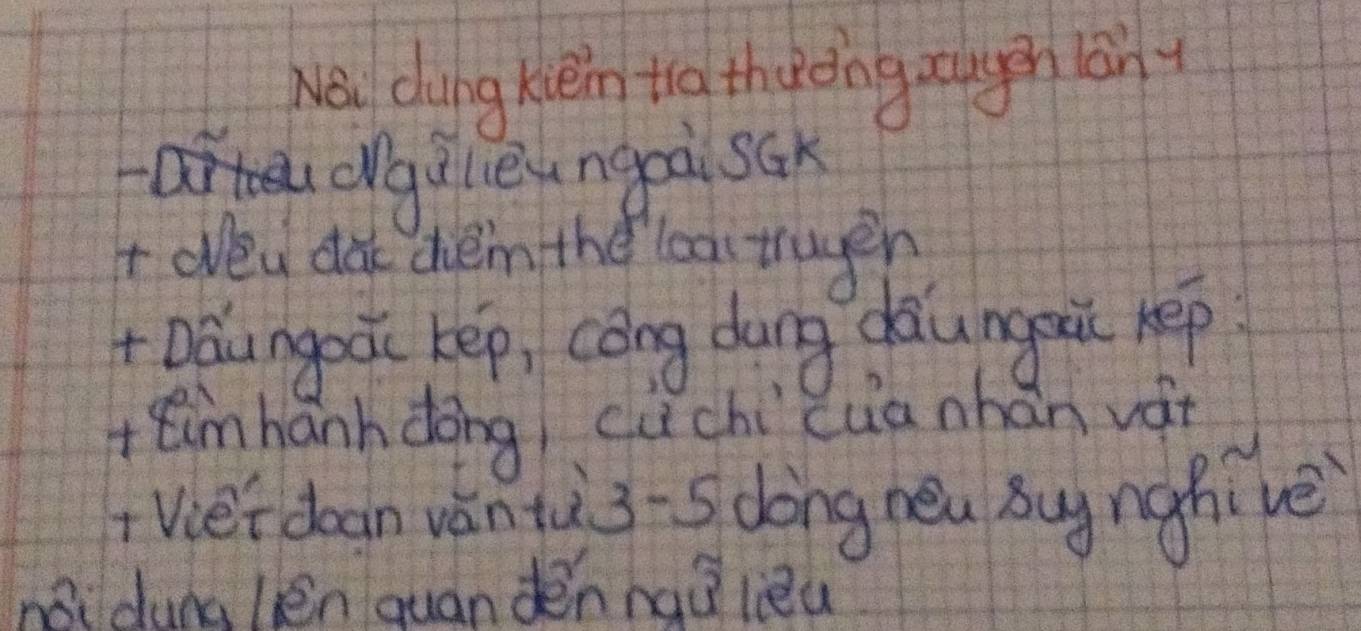 Nội dung kiểm tra thường xuyên lần 1
- Ngữ liệu ngoài SGK
+ Nêu đặc điểm thể loại truyện
+ Dấu ngoặc kép, công dụng dấu ngoặc kép.
+ tìm hành động, cử chỉ của nhân vật
+ Viết đoạn văn từ 3-5 dòng nêu suy nghĩ về
nội dung liên quan đến ngữ liệu